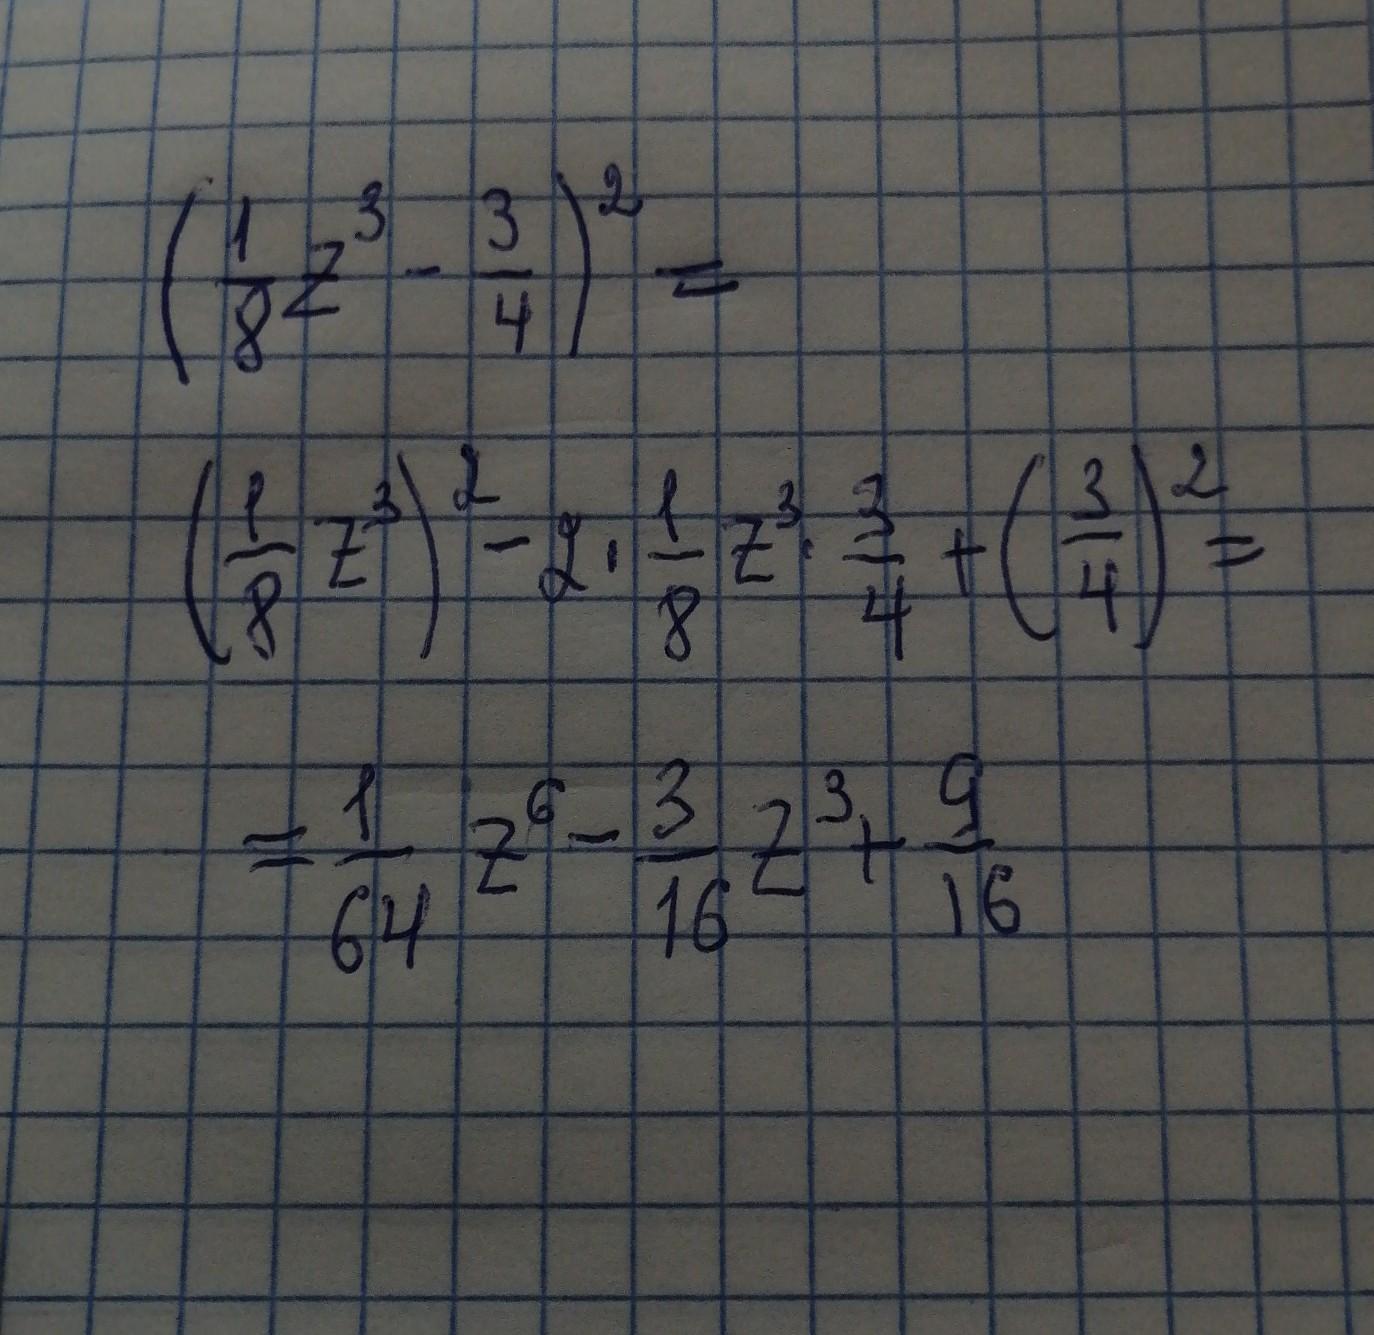 (1/8 z³ - 3/4)² =
(1/8 z³)² - 2 · 1/8 z³ · 3/4 + (3/4)² =
= 1/64 z⁶ - 3/16 z³ + 9/16